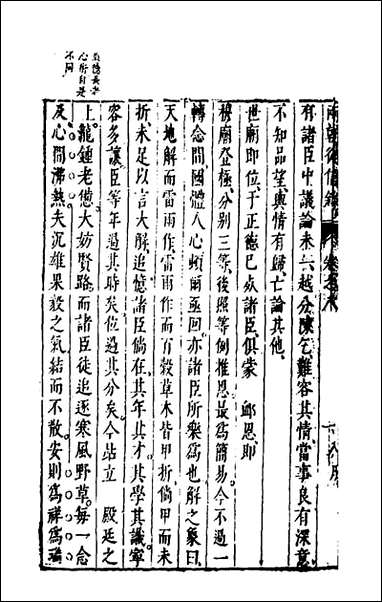 有諸臣中議論未一越分陳乞難容其情當事良有深意
不知品望輿情有歸亡論其他
世廟即位于正德已故諸臣俱蒙 卹恩即
穆廟登極分別三等後照等例推恩最為簡易今不過一
轉念間國體人心頓爾亟回亦諸臣所樂為也解之彖曰
天地解而雷雨作雷雨作而百穀草木皆甲折倘甲而未
折未足以言大解追憶諸臣倘在其年其才其學其識寧
容多讓臣等年過其時矣位過其分矣今站立 殿廷之
上龍鍾老憊大妨賢路而諸臣徒追逐寒風野草每一念
及心間沸熱夫沉雄果毅之氣結而不散安則為祥為瑞
心所自是
不同